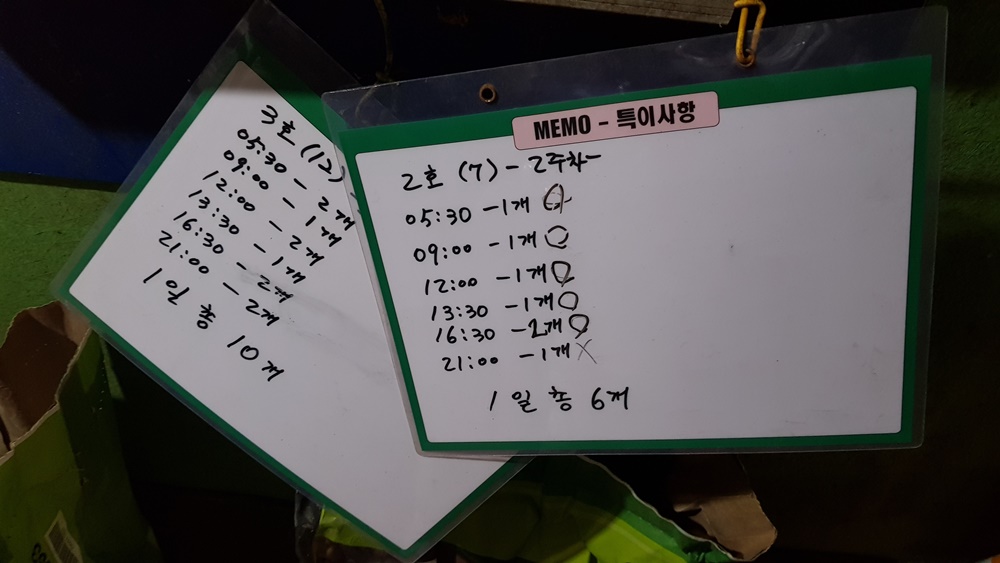 MEMO - 특이사항
2호 (7) - 2주차
05:30 - 1개 O
09:00 - 1개 O
12:00 - 1개 O
13:30 - 1개 O
16:30 - 1개 O
21:00 - 1개 X
1일 총 6개
3호 (12) -
05:30 - 2개
09:00 - 1개
12:00 - 2개
13:30 - 1개
16:30 - 2개
21:00 - 2개
1일 총 10개